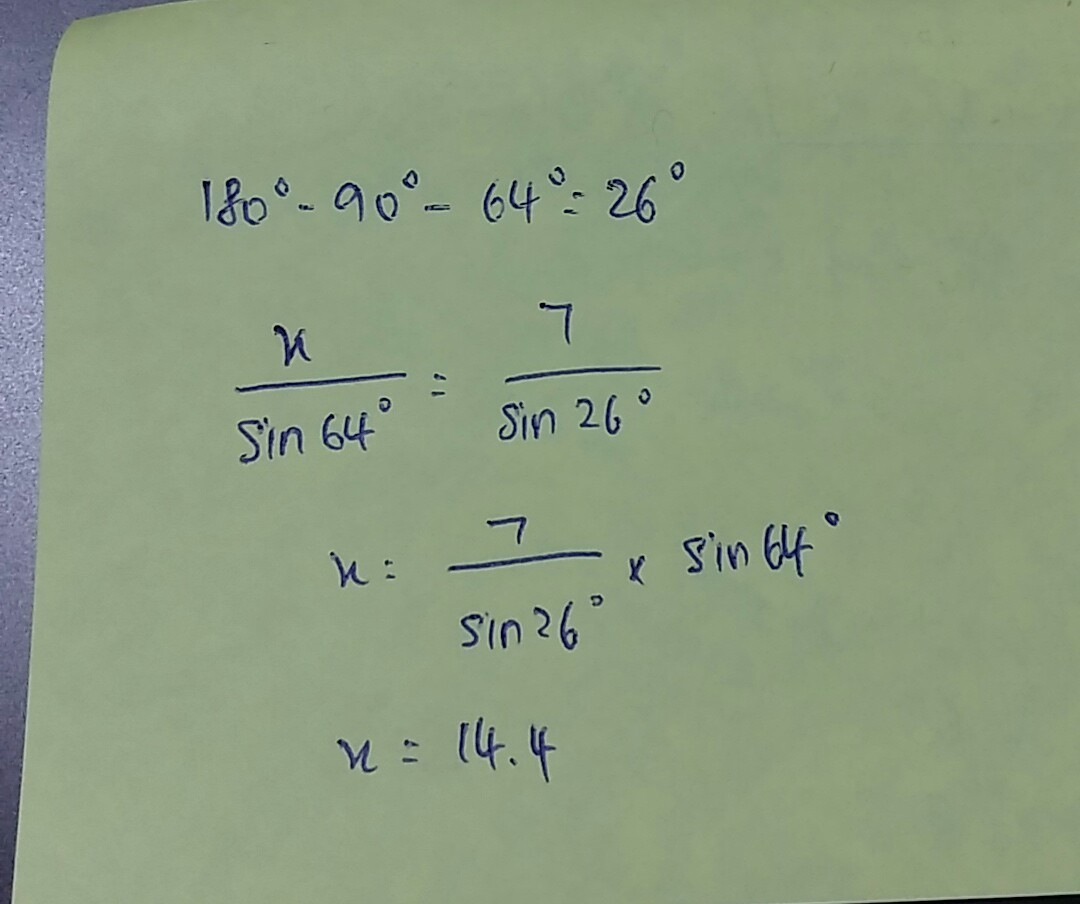 180° - 90° - 64° = 26°
x / sin 64° = 7 / sin 26°
x = 7 / sin 26° × sin 64°
x = 14.4